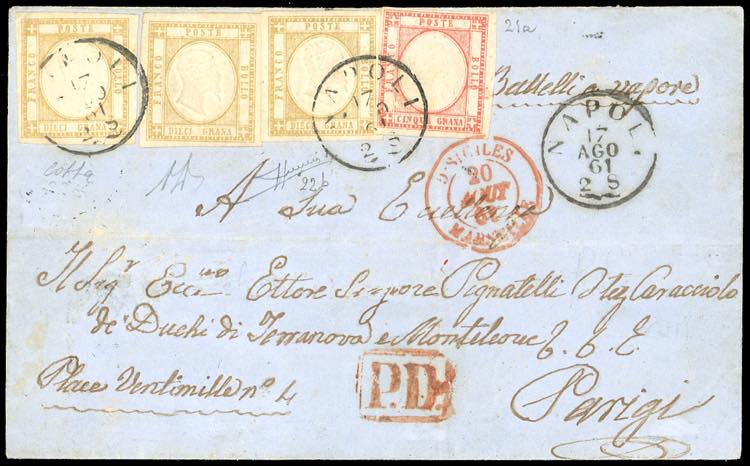 POSTE
FRANCO
BOLLO
DIECI GRANA
POSTE
FRANCO
BOLLO
DIECI GRANA
POSTE
FRANCO
BOLLO
DIECI GRANA
POSTE
BOLLO
CINQUE GRANA
21a
Battelli a vapore
NAPOLI
17
NAPOLI
17
NAPOLI
17
AGO
61
2 S
22b
D. SICILES
20
AOUT
61
MARSEILLE
A Sua Eccellenza
Il Sig.r Ecc.mo Ettore Signore Pignatelli Caracciolo
de' Duchi di Terranova e Monteleone
Place Ventimille n.o 4
P.D.
Parigi